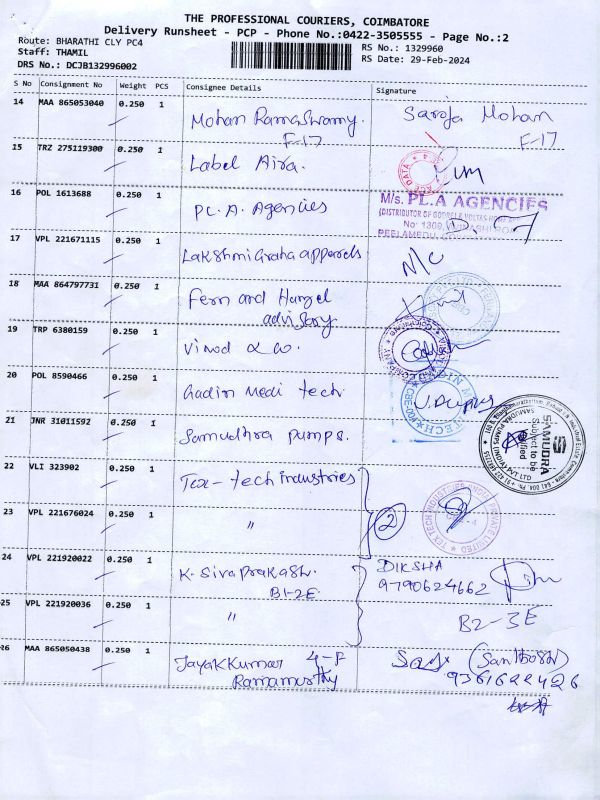 THE PROFESSIONAL COURIERS, COIMBATORE
Delivery Runsheet - PCP - Phone No.:0422-3505555 - Page No.:2
Route: BHARATHI CLY PC4
RS No.: 1329960
Staff: THAMIL
RS Date: 29-Feb-2024
DRS No.: DCJB132996002
S No Consignment No Weight PCS Consignee Details Signature
14 MAA 865053040 0.250 1 Mohan Ramaswamy. Saroja Mohan
F-17 F-17
15 TRZ 275119300 0.250 1 Label Aira.
16 POL 1613688 0.250 1 PL. A. Agencies
M/s. PL.A AGENCIES
17 VPL 221671115 0.250 1 Lakshmi Graha apparels N/C
18 MAA 864797731 0.250 1 Fern and Hazel
advisory
19 TRP 6380159 0.250 1 Vinod & co.
20 POL 8590466 0.250 1 Medi tech.
21 JNR 31011592 0.250 1 Samudhra pumps.
SAMUDRA
Subject to be
Verified
SAMUDRA PUMPS (INDIA) PVT LTD
22 VLI 323902 0.250 1 Tex-tech industries
23 VPL 221676024 0.250 1 " 2
24 VPL 221920022 0.250 1 K. Sivaprakash. DIKSHA
B1-2E 9790624662
25 VPL 221920036 0.250 1 " B2-3E
26 MAA 865050438 0.250 1 4-F
Ramamurthy 9361622426